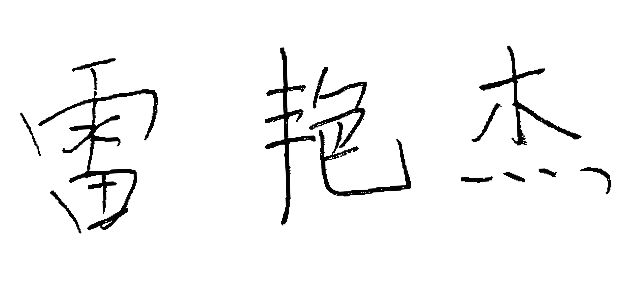 雷艳杰